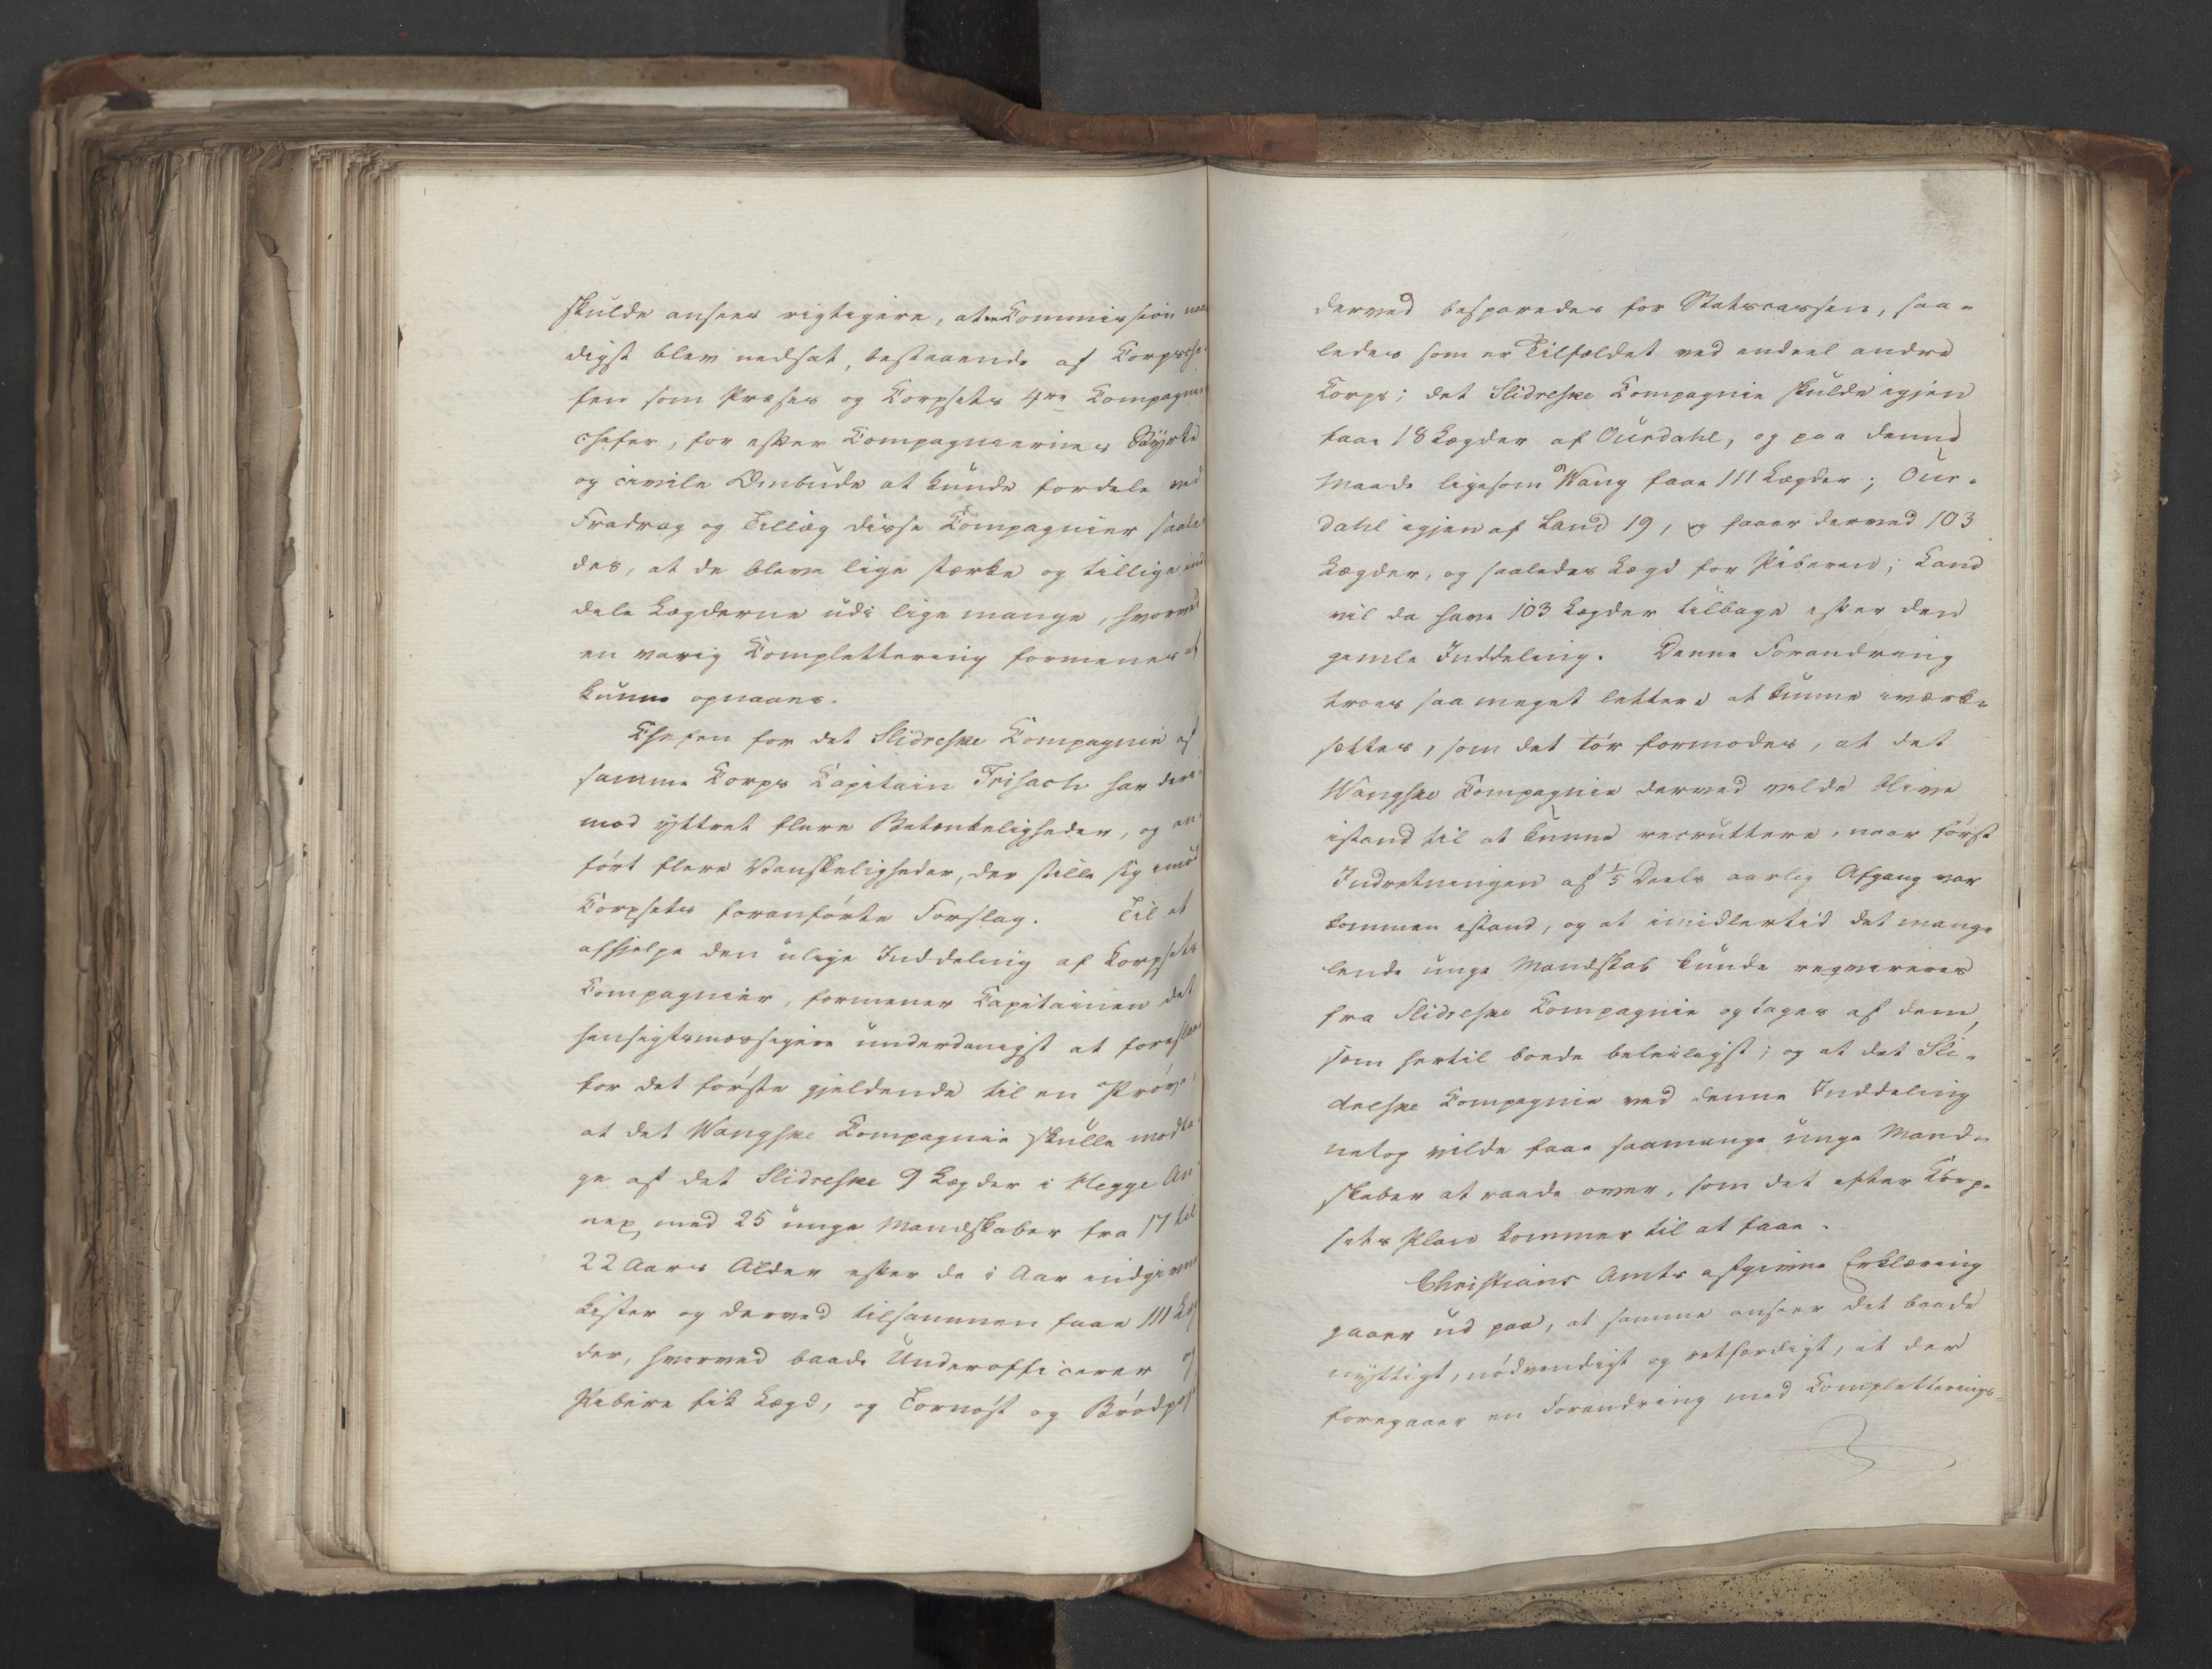 skulde ansees rigtigere, at en Commission naa-
digst blev nedsat, bestaaende af Corpsche-
fen som Præses og Corpsets 4re Compagnie
chefer, for efter Compagniernes Styrke
og civile Ombude at kunde fordele ved
Fradrag og Tillæg disse Compagnier saale-
des, at de bleve lige stærke og tillige ind-
dele Lægderne udi lige mange, hvorved
en varig Complettering formenes at
kunne opnaaes.
Chefen for det Slidreske Compagnie af
samme Corps Capitain Frisach har deri-
mod yttret flere Betænkeligheder, og an-
ført flere Vanskeligheder, der stille sig imod
Corpsets foranførte Forslag. Til at
afhjelpe den ulige Inddeling af Corpsets
Compagnier, formener Capitainen det
hensigtsmæssigere underdanigst at foreslaae
for det første gjeldende til en Prøve,
at det Wangske Compagnie skulle modta-
ge af det Slidreske 9 Lægder i Hegge An-
nex, med 25 unge Mandskaber fra 17 til
22 Aars Alder efter de i Aar indgivne
Lister og derved tilsammen faae 111 Læg
der, hvorved baade Underofficerer og
Pibere fik Lægd, og Tornøst og Brødpost
derved besparedes for Statscassen, saa-
ledes som er Tilfældet ved endeel andre
Corps; det Slidreske Compagnie skulde igjen
faae 18 Lægder af Ourdahl, og paa denne
Maade ligesom Wang faae 111 Lægder; Our-
dahl igjen af Land 19, og faaer derved 103
Lægder, og saaledes Lægd for Piberen; Land
vil da have 103 Lægder tilbage efter den
gamle Inddeling. Denne Forandring
troes saa meget lettere at kunne iværk-
sættes, som det tør formodes, at det
Wangske Compagnie derved vilde blive
istand til at kunne recruttere, naar først
Indretningen af 1/5 Deels aarlig Afgang var
kommen istand, og at imidlertid det mang-
lende unge Mandskab kunde reqvireres
fra Slidreske Compagnie og tages af dem,
som hertil boede beleiligst; og at det Sli-
dreske Compagnie ved denne Inddeling
netop vilde faae saamange unge Mand-
skaber at raade over, som det efter Corp-
sets Plan kommer til at faae.
Christians Amts afgivne Erklæring
gaaer ud paa, at samme anseer det baade
nyttigt, nødvendigt og retfærdigt, at der
foregaaer en Forandring med Completterings-